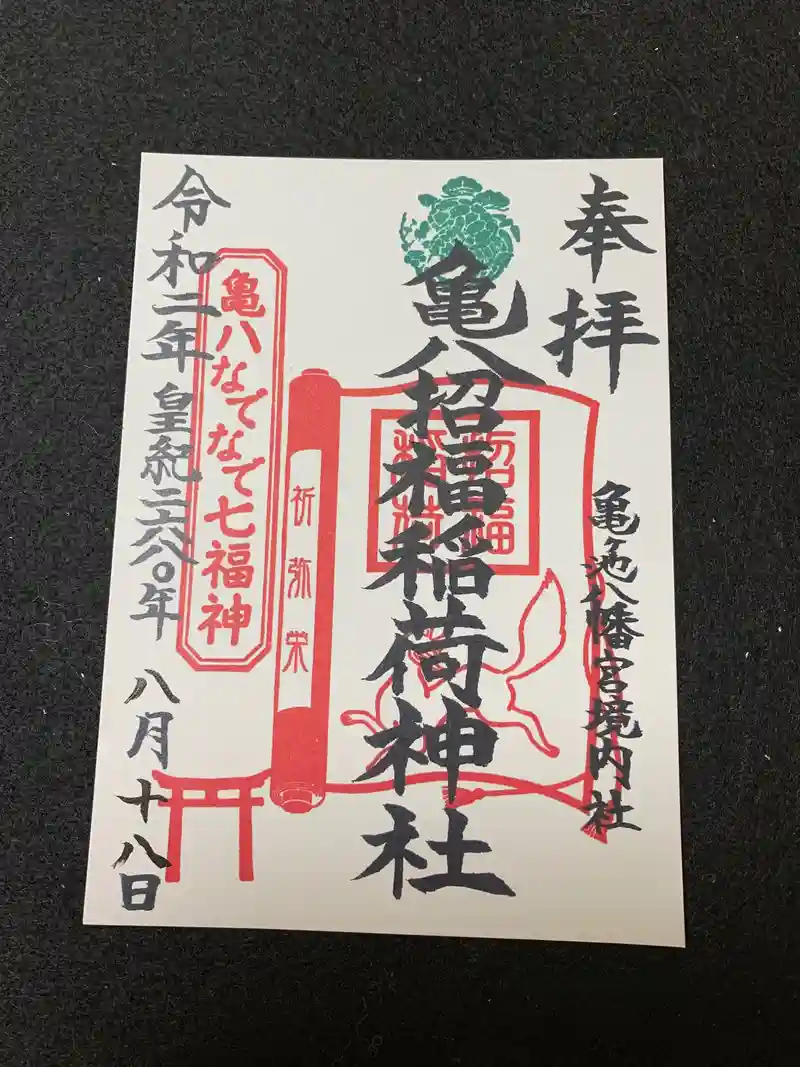 奉拝
亀ヶ池八幡宮境内社
亀八招福稲荷神社
招福
稲荷
祈弥栄
亀八なでなで七福神
令和二年皇紀二六八〇年八月十八日